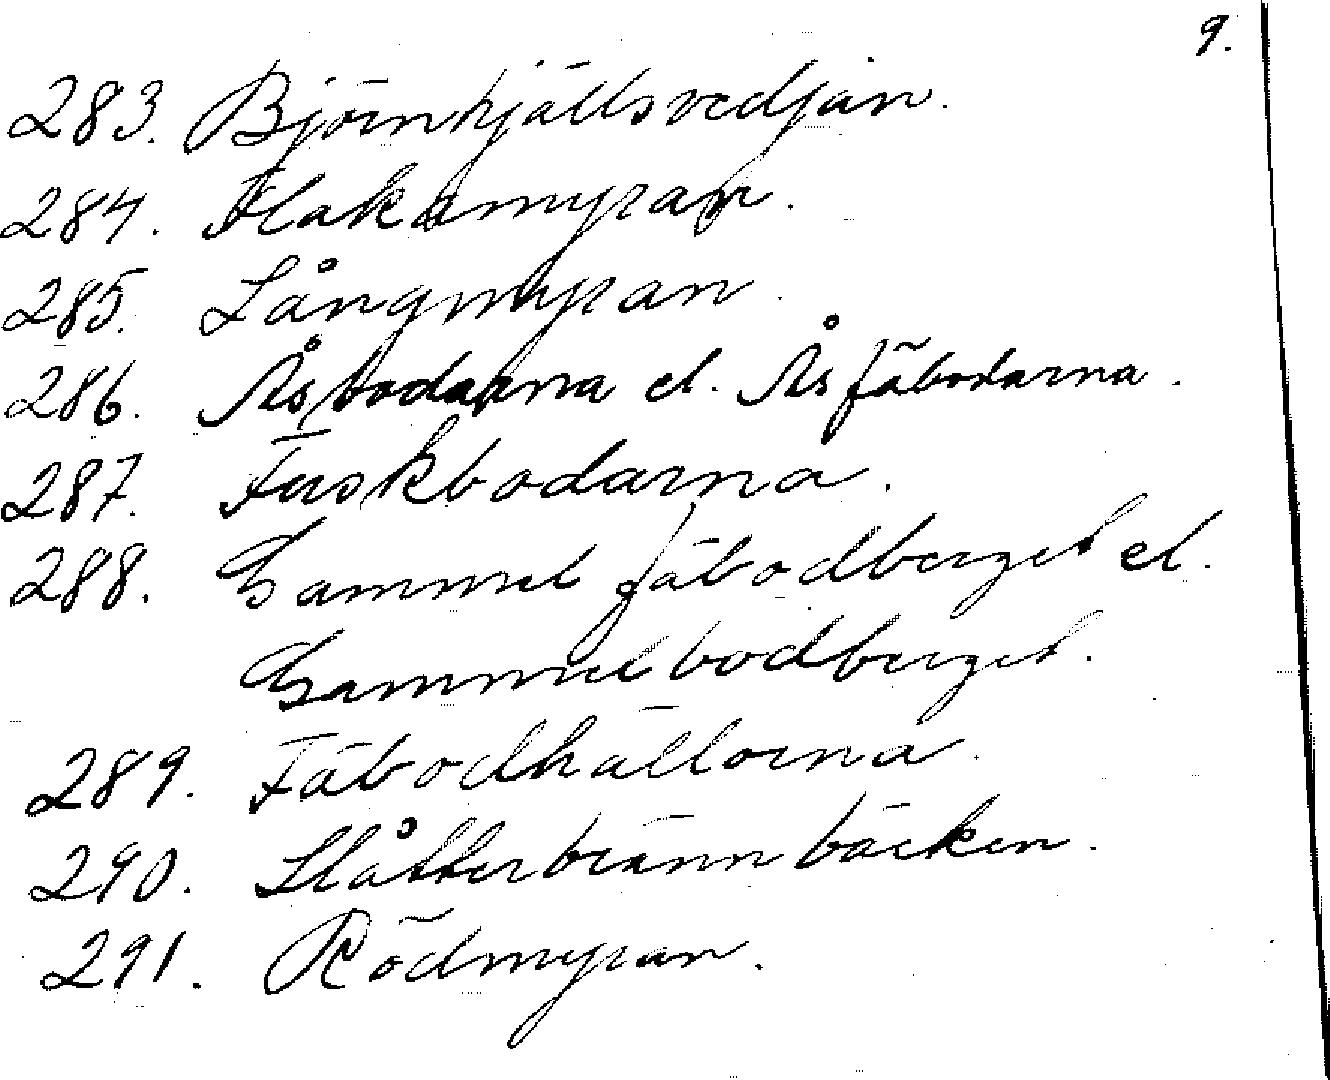 9.
283. Björnhjällsvedjan.
284. Flakamyran.
285. Långmyran.
286. Åsbodarna el. Åsfäbodarna.
287. Fuskbodarna.
288. Gammelfäbodberget el.
Gammelbodberget.
289. Fäbodhällorna.
290. Slåtterbrännbäcken.
291. Rödmyran.